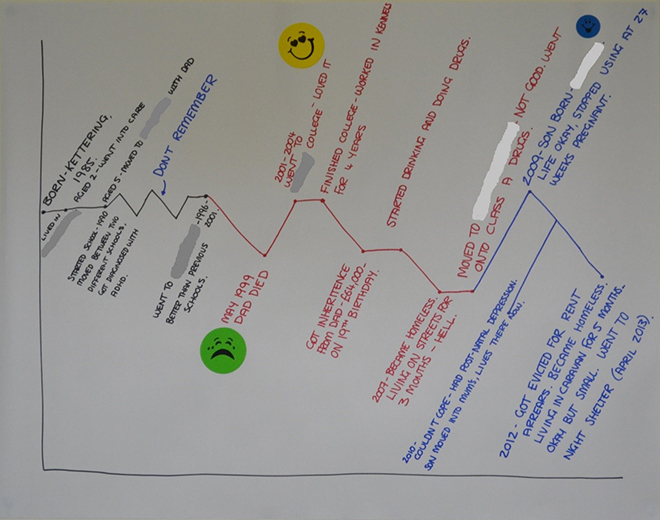 BORN - KETTERING.
1985.
AGED 2 - WENT INTO CARE
AGED 5 - MOVED TO
WITH DAD
DON'T REMEMBER
LIVED IN
STARTED SCHOOL - 1990
MOVED BETWEEN TWO
DIFFERENT SCHOOLS.
GOT DIAGNOSED WITH
ADHD.
WENT TO
- 1996-
2001
BETTER THAN PREVIOUS
SCHOOLS.
MAY 1999
DAD DIED
2001 - 2004
WENT TO
COLLEGE - LOVED IT
FINISHED COLLEGE - WORKED IN KENNELS
FOR 4 YEARS
GOT INHERITENCE
FROM DAD - £64,000 -
ON 19TH BIRTHDAY.
STARTED DRINKING AND DOING DRUGS.
2007 - BECAME HOMELESS.
LIVING ON STREETS FOR
3 MONTHS - HELL.
MOVED TO
NOT GOOD. WENT
ONTO CLASS A DRUGS.
2009 - SON BORN -
LIFE OKAY. STOPPED USING AT 27
WEEKS PREGNANT.
2010 -
COULDN'T COPE - HAD POST-NATAL DEPRESSION.
SON MOVED INTO MUM'S, LIVES THERE NOW.
2012 - GOT EVICTED FOR RENT
ARREARS. BECAME HOMELESS.
LIVING IN CARAVAN FOR 5 MONTHS.
OKAY BUT SMALL. WENT TO
NIGHT SHELTER (APRIL 2013)